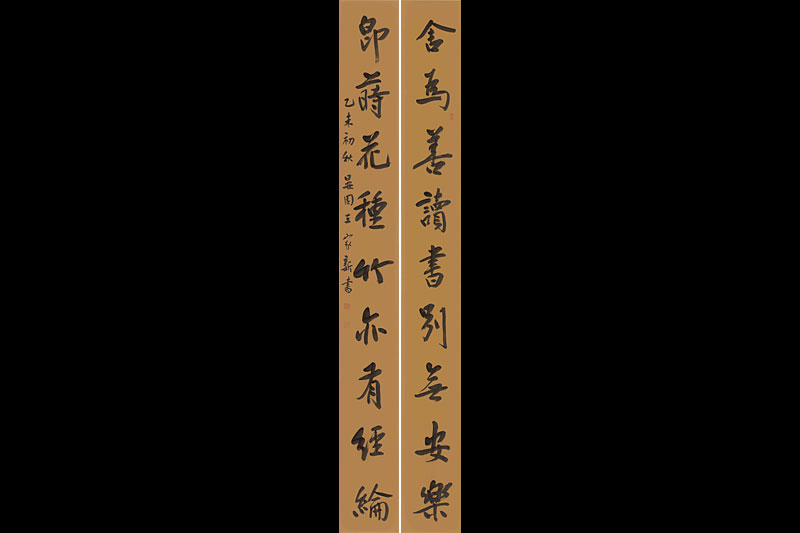 舍為善讀書別無安樂
即蒔花種竹亦有經綸
乙未初秋晏園王家新書